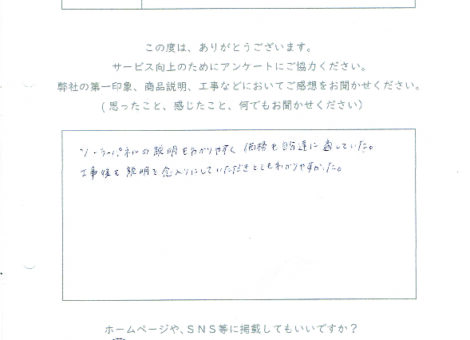 この度は、ありがとうございます。
サービス向上のためにアンケートにご協力ください。
弊社の第一印象、商品説明、工事などにおいてご感想をお聞かせください。
(思ったこと、感じたこと、何でもお聞かせください)
ソーラーパネルの説明もわかりやすく 価格も に していた。
工事後も説明を念入りにしていただきとてもわかりやすかった。
ホームページや、SNS等に掲載してもいいですか？